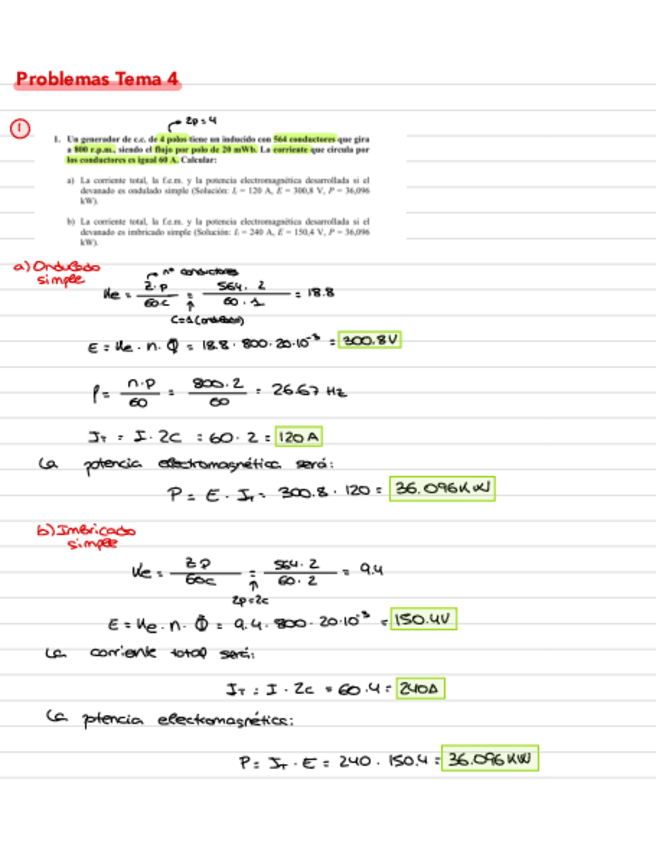 Problemas Tema 4
2p = 4
1
1. Un generador de c.c. de 4 polos tiene un inducido con 564 conductores que gira
a 800 r.p.m., siendo el flujo por polo de 20 mWb. La corriente que circula por
los conductores es igual 60 A. Calcular:
a) La corriente total, la f.e.m. y la potencia electromagnética desarrollada si el
devanado es ondulado simple (Solución: Iᵢ = 120 A, E = 300,8 V, P = 36,096
kW).
b) La corriente total, la f.e.m. y la potencia electromagnética desarrollada si el
devanado es imbricado simple (Solución: Iᵢ = 240 A, E = 150,4 V, P = 36,096
kW).
a) Ondulado
simple
nº conductores
Ke = Z·P / 60c = 564·2 / 60·1 = 18.8
C=1 (ondulado)
E = Ke · n · Φ = 18.8 · 800 · 20·10⁻³ = 300.8V
f = n·p / 60 = 800·2 / 60 = 26.67 Hz
IT = I · 2C = 60 · 2 = 120 A
La potencia electromagnética será:
P = E · IT = 300.8 · 120 = 36.096KW
b) Imbricado
simple
Ke = ZP / 60c = 564·2 / 60·2 = 9.4
2p=2c
E = Ke · n · Φ = 9.4 · 800 · 20·10⁻³ = 150.4V
La corriente total será:
IT = I · 2c = 60 · 4 = 240A
La ptencia electromagnética:
P = IT · E = 240 · 150.4 = 36.096 KW